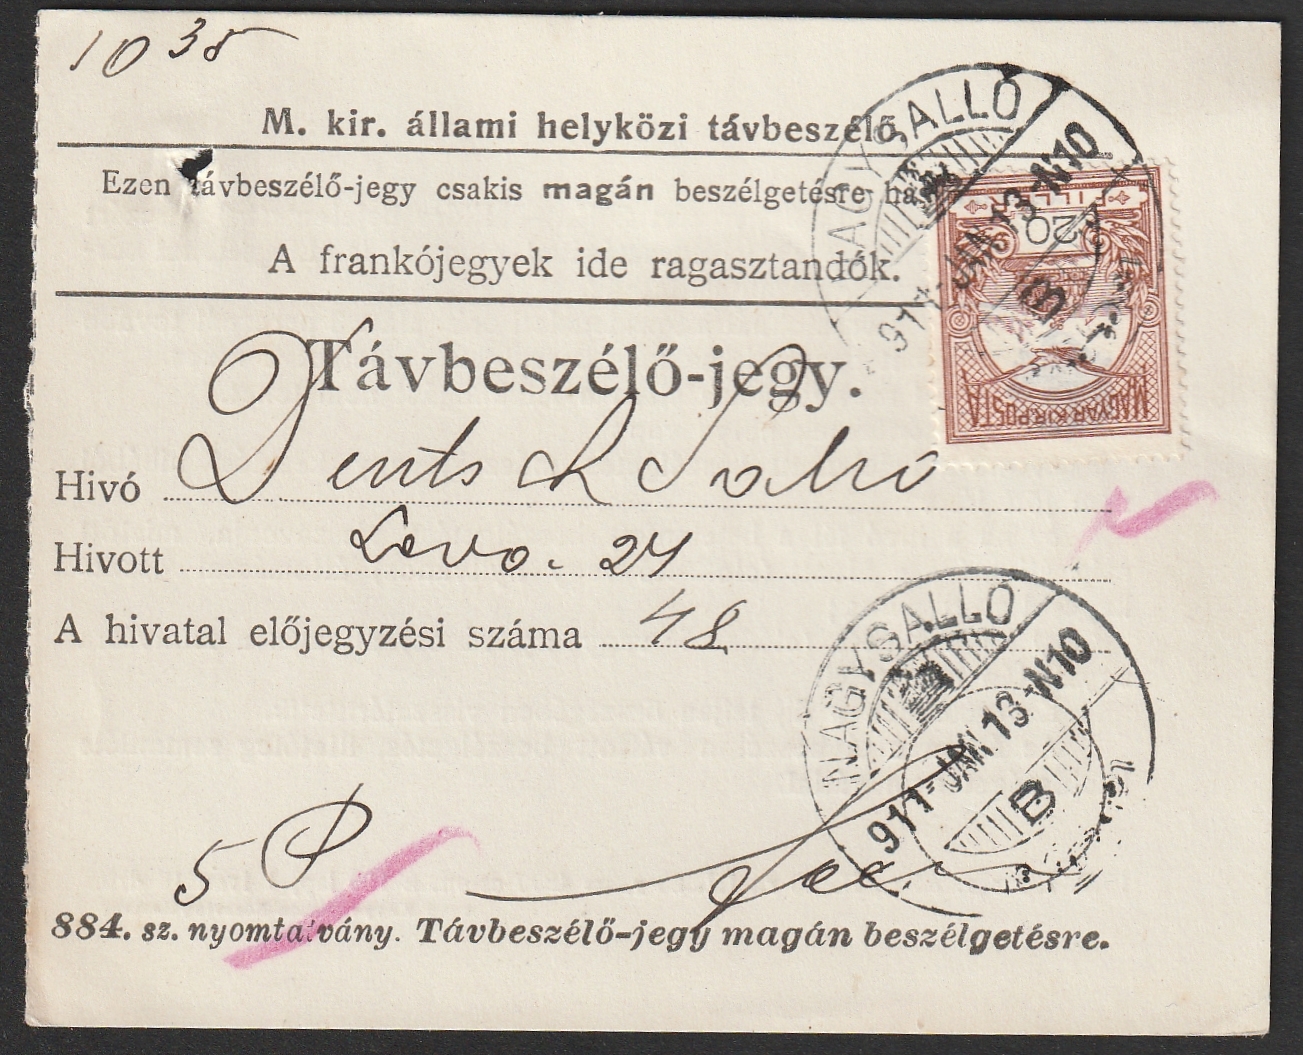 10 35
M. kir. állami helyközi távbeszélő
Ezen távbeszélő-jegy csakis magán beszélgetésre
A frankójegyek ide ragasztandók.
Távbeszélő-jegy.
Hivó Deutsch
Hivott Leva. 24
A hivatal előjegyzési száma 48
5 P
884. sz. nyomtatvány. Távbeszélő-jegy magán beszélgetésre.
NAGYSALLÓ
911-JAN.13-N10
B
20
FILLÉR
MAGYAR KIR. POSTA
NAGYSALLÓ
911-JAN.13-N10
B